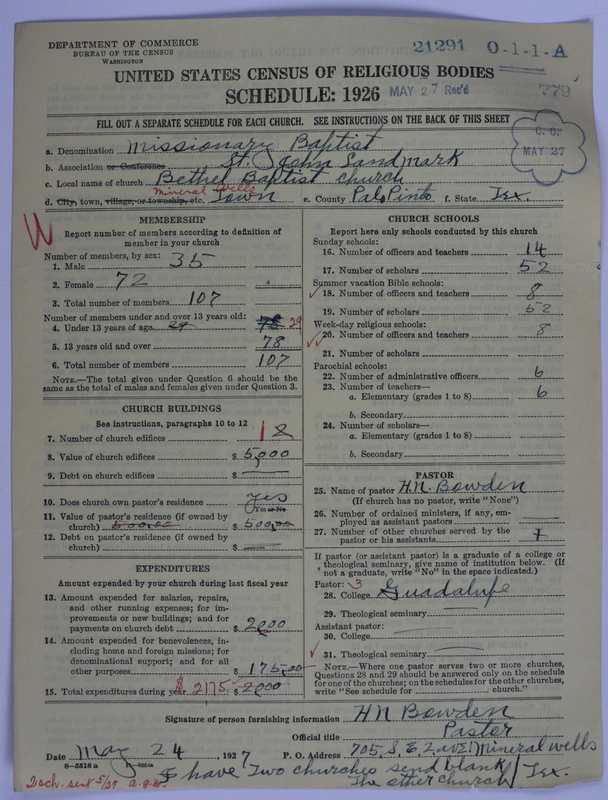 DEPARTMENT OF COMMERCE
BUREAU OF THE CENSUS
WASHINGTON
21291 0-1-1-A
UNITED STATES CENSUS OF RELIGIOUS BODIES
SCHEDULE: 1926
MAY 27 Rec'd
779
FILL OUT A SEPARATE SCHEDULE FOR EACH CHURCH. SEE INSTRUCTIONS ON THE BACK OF THIS SHEET
C. C.
MAY 27
a. Denomination Missionary Baptist
b. Association or Conference St. John Landmark
c. Local name of church Bethel Baptist church
Mineral Wells
d. City, town, village, or township, etc. Town e. County Palo Pinto f. State Tex.
W
MEMBERSHIP
Report number of members according to definition of
member in your church
Number of members, by sex:
1. Male 35
2. Female 72
3. Total number of members 107
Number of members under and over 13 years old:
4. Under 13 years of age 29 78 29
5. 13 years old and over 78
6. Total number of members 107
NOTE.—The total given under Question 6 should be
the same as the total of males and females given under Question 3.
CHURCH BUILDINGS
See instructions, paragraphs 10 to 12
7. Number of church edifices 1 2
8. Value of church edifices $ 5,000
9. Debt on church edifices $
10. Does church own pastor's residence yes
Yes or No
11. Value of pastor's residence (if owned by
church) 500.00 $ 500.00
12. Debt on pastor's residence (if owned by
church) $
EXPENDITURES
Amount expended by your church during last fiscal year
13. Amount expended for salaries, repairs,
and other running expenses; for im-
provements or new buildings; and for
payments on church debt $ 2000
14. Amount expended for benevolences, in-
cluding home and foreign missions; for
denominational support; and for all
other purposes $ 175.00
15. Total expenditures during year $ 2175 $ 2000
CHURCH SCHOOLS
Report here only schools conducted by this church
Sunday schools:
16. Number of officers and teachers 14
17. Number of scholars 52
Summer vacation Bible schools:
18. Number of officers and teachers 8
19. Number of scholars 52
Week-day religious schools:
20. Number of officers and teachers 8
21. Number of scholars
Parochial schools:
22. Number of administrative officers 6
23. Number of teachers—
a. Elementary (grades 1 to 8) 6
b. Secondary
24. Number of scholars—
a. Elementary (grades 1 to 8)
b. Secondary
PASTOR
25. Name of pastor H.N. Bowden
(If church has no pastor, write "None")
26. Number of ordained ministers, if any, em-
ployed as assistant pastors
27. Number of other churches served by the
pastor or his assistants 1
If pastor (or assistant pastor) is a graduate of a college or
theological seminary, give name of institution below. (If
not a graduate, write "No" in the space indicated.)
Pastor: 3
28. College Guadalupe
29. Theological seminary
Assistant pastor:
30. College
31. Theological seminary
NOTE.—Where one pastor serves two or more churches,
Questions 28 and 29 should be answered only on the schedule
for one of the churches; on the schedules for the other churches,
write "See schedule for church."
Signature of person furnishing information H N Bowden
Official title Pastor
Date May 24, 1927 P. O. Address 705, S. E 2 ave Mineral wells
8-5518 a
Tex.
I have Two churches send blank
The other church
2 sch. sent 5/27